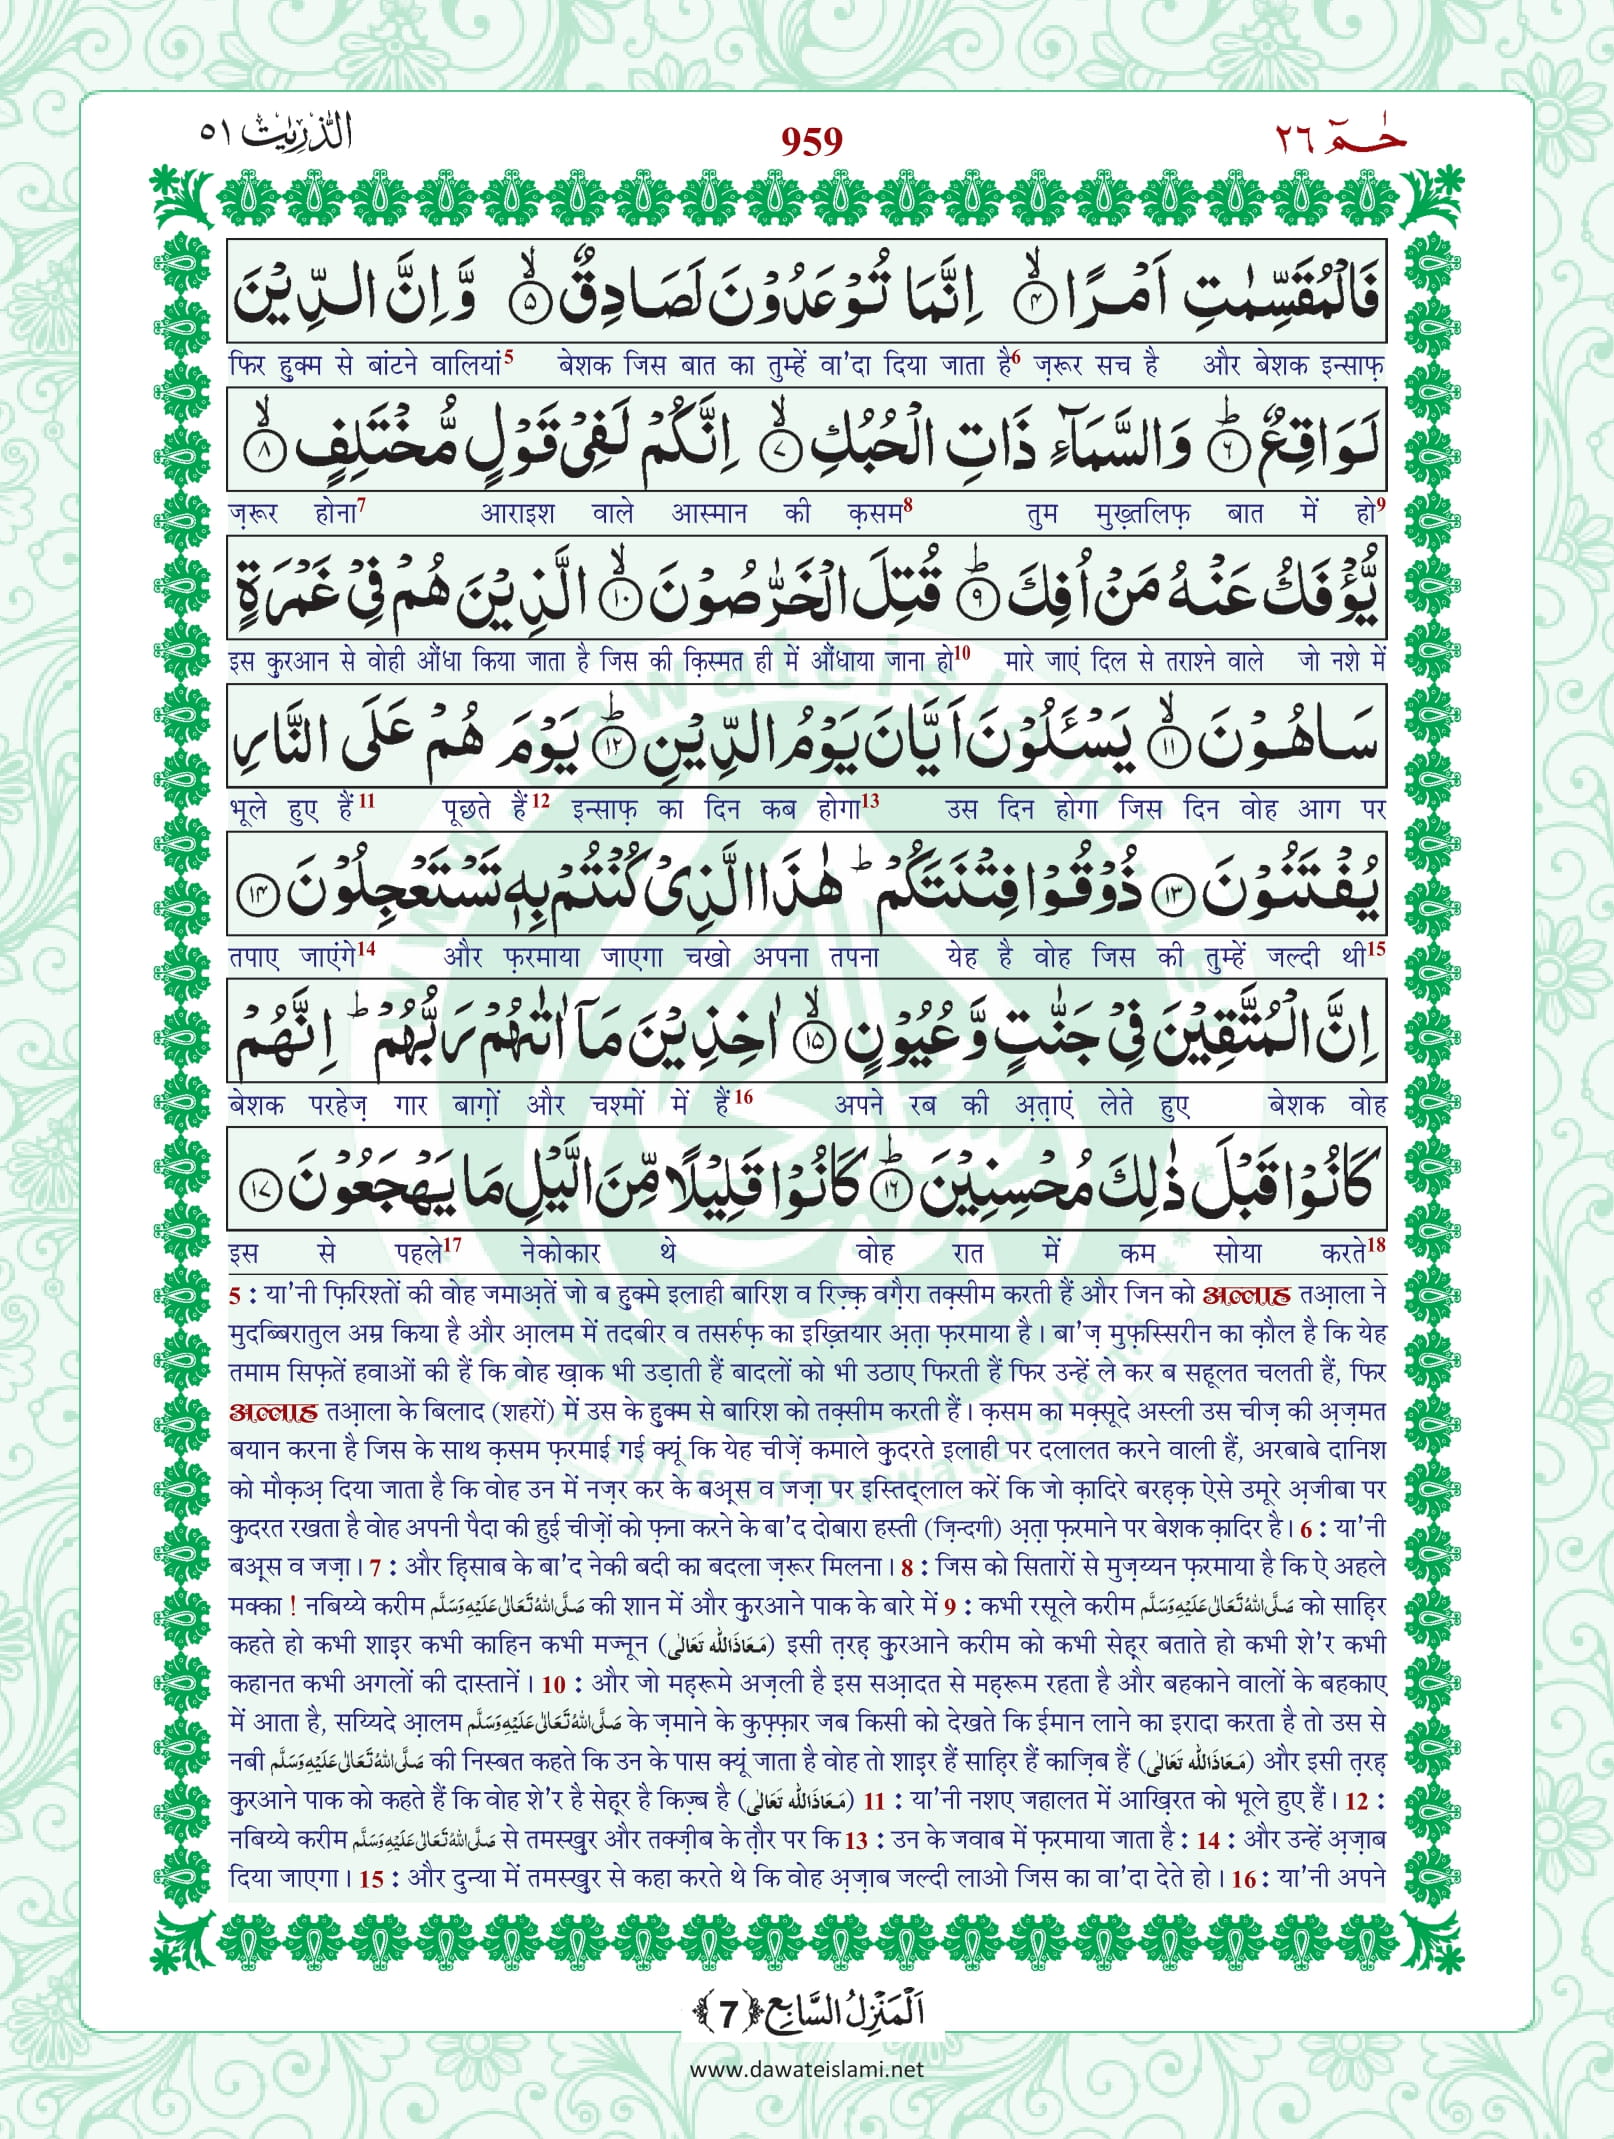 الذّٰرِیٰت ٥١
959
حٰمٓ ٢٦
فَالْمُقَسِّمٰتِ اَمْرًا ۙ﴿۴﴾ اِنَّمَا تُوْعَدُوْنَ لَصَادِقٌ ۙ﴿۵﴾ وَّ اِنَّ الدِّیْنَ
फिर हुक्म से बांटने वालियां5 बेशक जिस बात का तुम्हें वा'दा दिया जाता है6 ज़रूर सच है और बेशक इन्साफ़
لَوَاقِعٌ ؕ﴿۶﴾ وَالسَّمَآءِ ذَاتِ الْحُبُكِ ۙ﴿۷﴾ اِنَّكُمْ لَفِیْ قَوْلٍ مُّخْتَلِفٍ ۙ﴿۸﴾
ज़रूर होना7 आराइश वाले आस्मान की क़सम8 तुम मुख़्तलिफ़ बात में हो9
یُّؤْفَكُ عَنْهُ مَنْ اُفِكَ ؕ﴿۹﴾ قُتِلَ الْخَرّٰصُوْنَ ۙ﴿۱۰﴾ الَّذِیْنَ هُمْ فِیْ غَمْرَةٍ
इस कुरआन से वोही औंधा किया जाता है जिस की क़िस्मत ही में औंधाया जाना हो10 मारे जाएं दिल से तराश्ने वाले जो नशे में
سَاهُوْنَ ۙ﴿۱۱﴾ یَسْـَٔلُوْنَ اَیَّانَ یَوْمُ الدِّیْنِ ؕ﴿۱۲﴾ یَوْمَ هُمْ عَلَی النَّارِ
भूले हुए हैं11 पूछते हैं12 इन्साफ़ का दिन कब होगा13 उस दिन होगा जिस दिन वोह आग पर
یُفْتَنُوْنَ ﴿۱۳﴾ ذُوْقُوْا فِتْنَتَكُمْ ؕ هٰذَا الَّذِیْ كُنْتُمْ بِهٖ تَسْتَعْجِلُوْنَ ﴿۱۴﴾
तपाए जाएंगे14 और फ़रमाया जाएगा चखो अपना तपना येह है वोह जिस की तुम्हें जल्दी थी15
اِنَّ الْمُتَّقِیْنَ فِیْ جَنّٰتٍ وَّ عُیُوْنٍ ۙ﴿۱۵﴾ اٰخِذِیْنَ مَاۤ اٰتٰىهُمْ رَبُّهُمْ ؕ اِنَّهُمْ
बेशक परहेज़ गार बाग़ों और चश्मों में हैं16 अपने रब की अ़त़ाएं लेते हुए बेशक वोह
كَانُوْا قَبْلَ ذٰلِكَ مُحْسِنِیْنَ ؕ﴿۱۶﴾ كَانُوْا قَلِیْلًا مِّنَ الَّیْلِ مَا یَهْجَعُوْنَ ﴿۱۷﴾
इस से पहले17 नेकोकार थे वोह रात में कम सोया करते18
5 : या'नी फ़िरिश्तों की वोह जमाअ़तें जो ब हुक्मे इलाही बारिश व रिज़्क़ वग़ैरा तक़्सीम करती हैं और जिन को अल्लाह तआ़ला ने
मुदब्बिरातुल अम्र किया है और आ़लम में तदबीर व तसर्रुफ़ का इख़्तियार अ़त़ा फ़रमाया है। बा'ज़ मुफ़स्सिरीन का क़ौल है कि येह
तमाम सिफ़तें हवाओं की हैं कि वोह ख़ाक भी उड़ाती हैं बादलों को भी उठाए फिरती हैं फिर उन्हें ले कर ब सहूलत चलती हैं, फिर
अल्लाह तआ़ला के बिलाद (शहरों) में उस के हुक्म से बारिश को तक़्सीम करती हैं। क़सम का मक़्सूदे अस्ली उस चीज़ की अ़ज़मत
बयान करना है जिस के साथ क़सम फ़रमाई गई क्यूं कि येह चीज़ें कमाले कुदरते इलाही पर दलालत करने वाली हैं, अरबाबे दानिश
को मौक़अ़ दिया जाता है कि वोह उन में नज़र कर के बअ़्स व जज़ा पर इस्तिद्लाल करें कि जो क़ादिरे बरह़क़ ऐसे उमूरे अ़जीबा पर
कुदरत रखता है वोह अपनी पैदा की हुई चीज़ों को फ़ना करने के बा'द दोबारा हस्ती (ज़िन्दगी) अ़त़ा फ़रमाने पर बेशक क़ादिर है। 6 : या'नी
बअ़्स व जज़ा। 7 : और ह़िसाब के बा'द नेकी बदी का बदला ज़रूर मिलना। 8 : जिस को सितारों से मुज़य्यन फ़रमाया है कि ऐ अहले
मक्का ! नबिय्ये करीम صَلَّی اللهُ تَعَالٰی عَلَیْهِ وَسَلَّم की शान में और कुरआने पाक के बारे में 9 : कभी रसूले करीम صَلَّی اللهُ تَعَالٰی عَلَیْهِ وَسَلَّم को साह़िर
कहते हो कभी शाइ़र कभी काहिन कभी मज्नून (مَعَاذَالله تَعَالٰی) इसी त़रह़ कुरआने करीम को कभी सेह़्र बताते हो कभी शे'र कभी
कहानत कभी अगलों की दास्तानें। 10 : और जो मह़रूमे अज़ली है इस सआ़दत से मह़रूम रहता है और बहकाने वालों के बहकाए
में आता है, सय्यिदे आ़लम صَلَّی اللهُ تَعَالٰی عَلَیْهِ وَسَلَّم के ज़माने के कुफ़्फ़ार जब किसी को देखते कि ईमान लाने का इरादा करता है तो उस से
नबी صَلَّی اللهُ تَعَالٰی عَلَیْهِ وَسَلَّم की निस्बत कहते कि उन के पास क्यूं जाता है वोह तो शाइ़र हैं साह़िर हैं काज़िब हैं (مَعَاذَالله تَعَالٰی) और इसी त़रह़
कुरआने पाक को कहते हैं कि वोह शे'र है सेह़्र है किज़्ब है (مَعَاذَالله تَعَالٰی) 11 : या'नी नशए जहालत में आख़िरत को भूले हुए हैं। 12 :
नबिय्ये करीम صَلَّی اللهُ تَعَالٰی عَلَیْهِ وَسَلَّم से तमस्ख़ुर और तक्ज़ीब के त़ौर पर कि 13 : उन के जवाब में फ़रमाया जाता है : 14 : और उन्हें अ़ज़ाब
दिया जाएगा। 15 : और दुन्या में तमस्ख़ुर से कहा करते थे कि वोह अ़ज़ाब जल्दी लाओ जिस का वा'दा देते हो। 16 : या'नी अपने
اَلْمَنْزِلُ السَّابِع ﴿7﴾
www.dawateislami.net